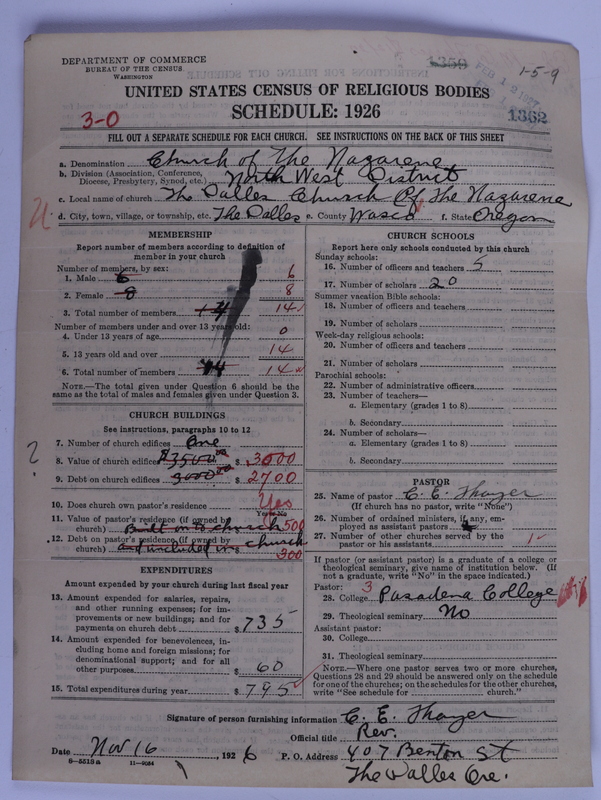 DEPARTMENT OF COMMERCE
BUREAU OF THE CENSUS
WASHINGTON
1359
FEB 12 1927
1-5-9
UNITED STATES CENSUS OF RELIGIOUS BODIES
SCHEDULE: 1926
3-0
1362
FILL OUT A SEPARATE SCHEDULE FOR EACH CHURCH. SEE INSTRUCTIONS ON THE BACK OF THIS SHEET
a. Denomination Church of The Nazarene
b. Division (Association, Conference, Diocese, Presbytery, Synod, etc.) North West District
c. Local name of church The Dalles Church Of The Nazarene
d. City, town, village, or township, etc. The Dalles e. County Wasco f. State Oregon
MEMBERSHIP
Report number of members according to definition of
member in your church
Number of members, by sex:
1. Male 6 6
2. Female 8 8
3. Total number of members 14 14
Number of members under and over 13 years old:
4. Under 13 years of age 0
5. 13 years old and over 14
6. Total number of members 14 14
NOTE.—The total given under Question 6 should be
same as the total of males and females given under Question 3.
CHURCH BUILDINGS
See instructions, paragraphs 10 to 12
7. Number of church edifices One
?
8. Value of church edifices $3500.00 $ 3000
9. Debt on church edifices 3000.00 $ 2700
10. Does church own pastor's residence Yes
Yes or No
11. Value of pastor's residence (if owned by
church) Built on to church 500
12. Debt on pastor's residence (if owned by
church) and included in church 300
EXPENDITURES
Amount expended by your church during last fiscal year
13. Amount expended for salaries, repairs,
and other running expenses; for im-
provements or new buildings; and for
payments on church debt $ 735
14. Amount expended for benevolences, in-
cluding home and foreign missions; for
denominational support; and for all
other purposes $ 60
15. Total expenditures during year $ 795
CHURCH SCHOOLS
Report here only schools conducted by this church
Sunday schools:
16. Number of officers and teachers 5
17. Number of scholars 20
Summer vacation Bible schools:
18. Number of officers and teachers
19. Number of scholars
Week-day religious schools:
20. Number of officers and teachers
21. Number of scholars
Parochial schools:
22. Number of administrative officers
23. Number of teachers—
a. Elementary (grades 1 to 8)
b. Secondary
24. Number of scholars—
a. Elementary (grades 1 to 8)
b. Secondary
PASTOR
25. Name of pastor C. E. Thayer
(If church has no pastor, write "None")
26. Number of ordained ministers, if any, em-
ployed as assistant pastors
27. Number of other churches served by the
pastor or his assistants 1
If pastor (or assistant pastor) is a graduate of a college or
theological seminary, give name of institution below. (If
not a graduate, write "No" in the space indicated.)
Pastor:
28. College 3 Pasadena College
29. Theological seminary No
Assistant pastor:
30. College
31. Theological seminary
NOTE.—Where one pastor serves two or more churches,
Questions 28 and 29 should be answered only on the schedule
for one of the churches; on the schedules for the other churches,
write "See schedule for church."
Signature of person furnishing information C. E. Thayer
Official title Rev.
Date Nov 16, 1926 P. O. Address 407 Benton St
8—5519a 11—9084
The Dalles Ore.